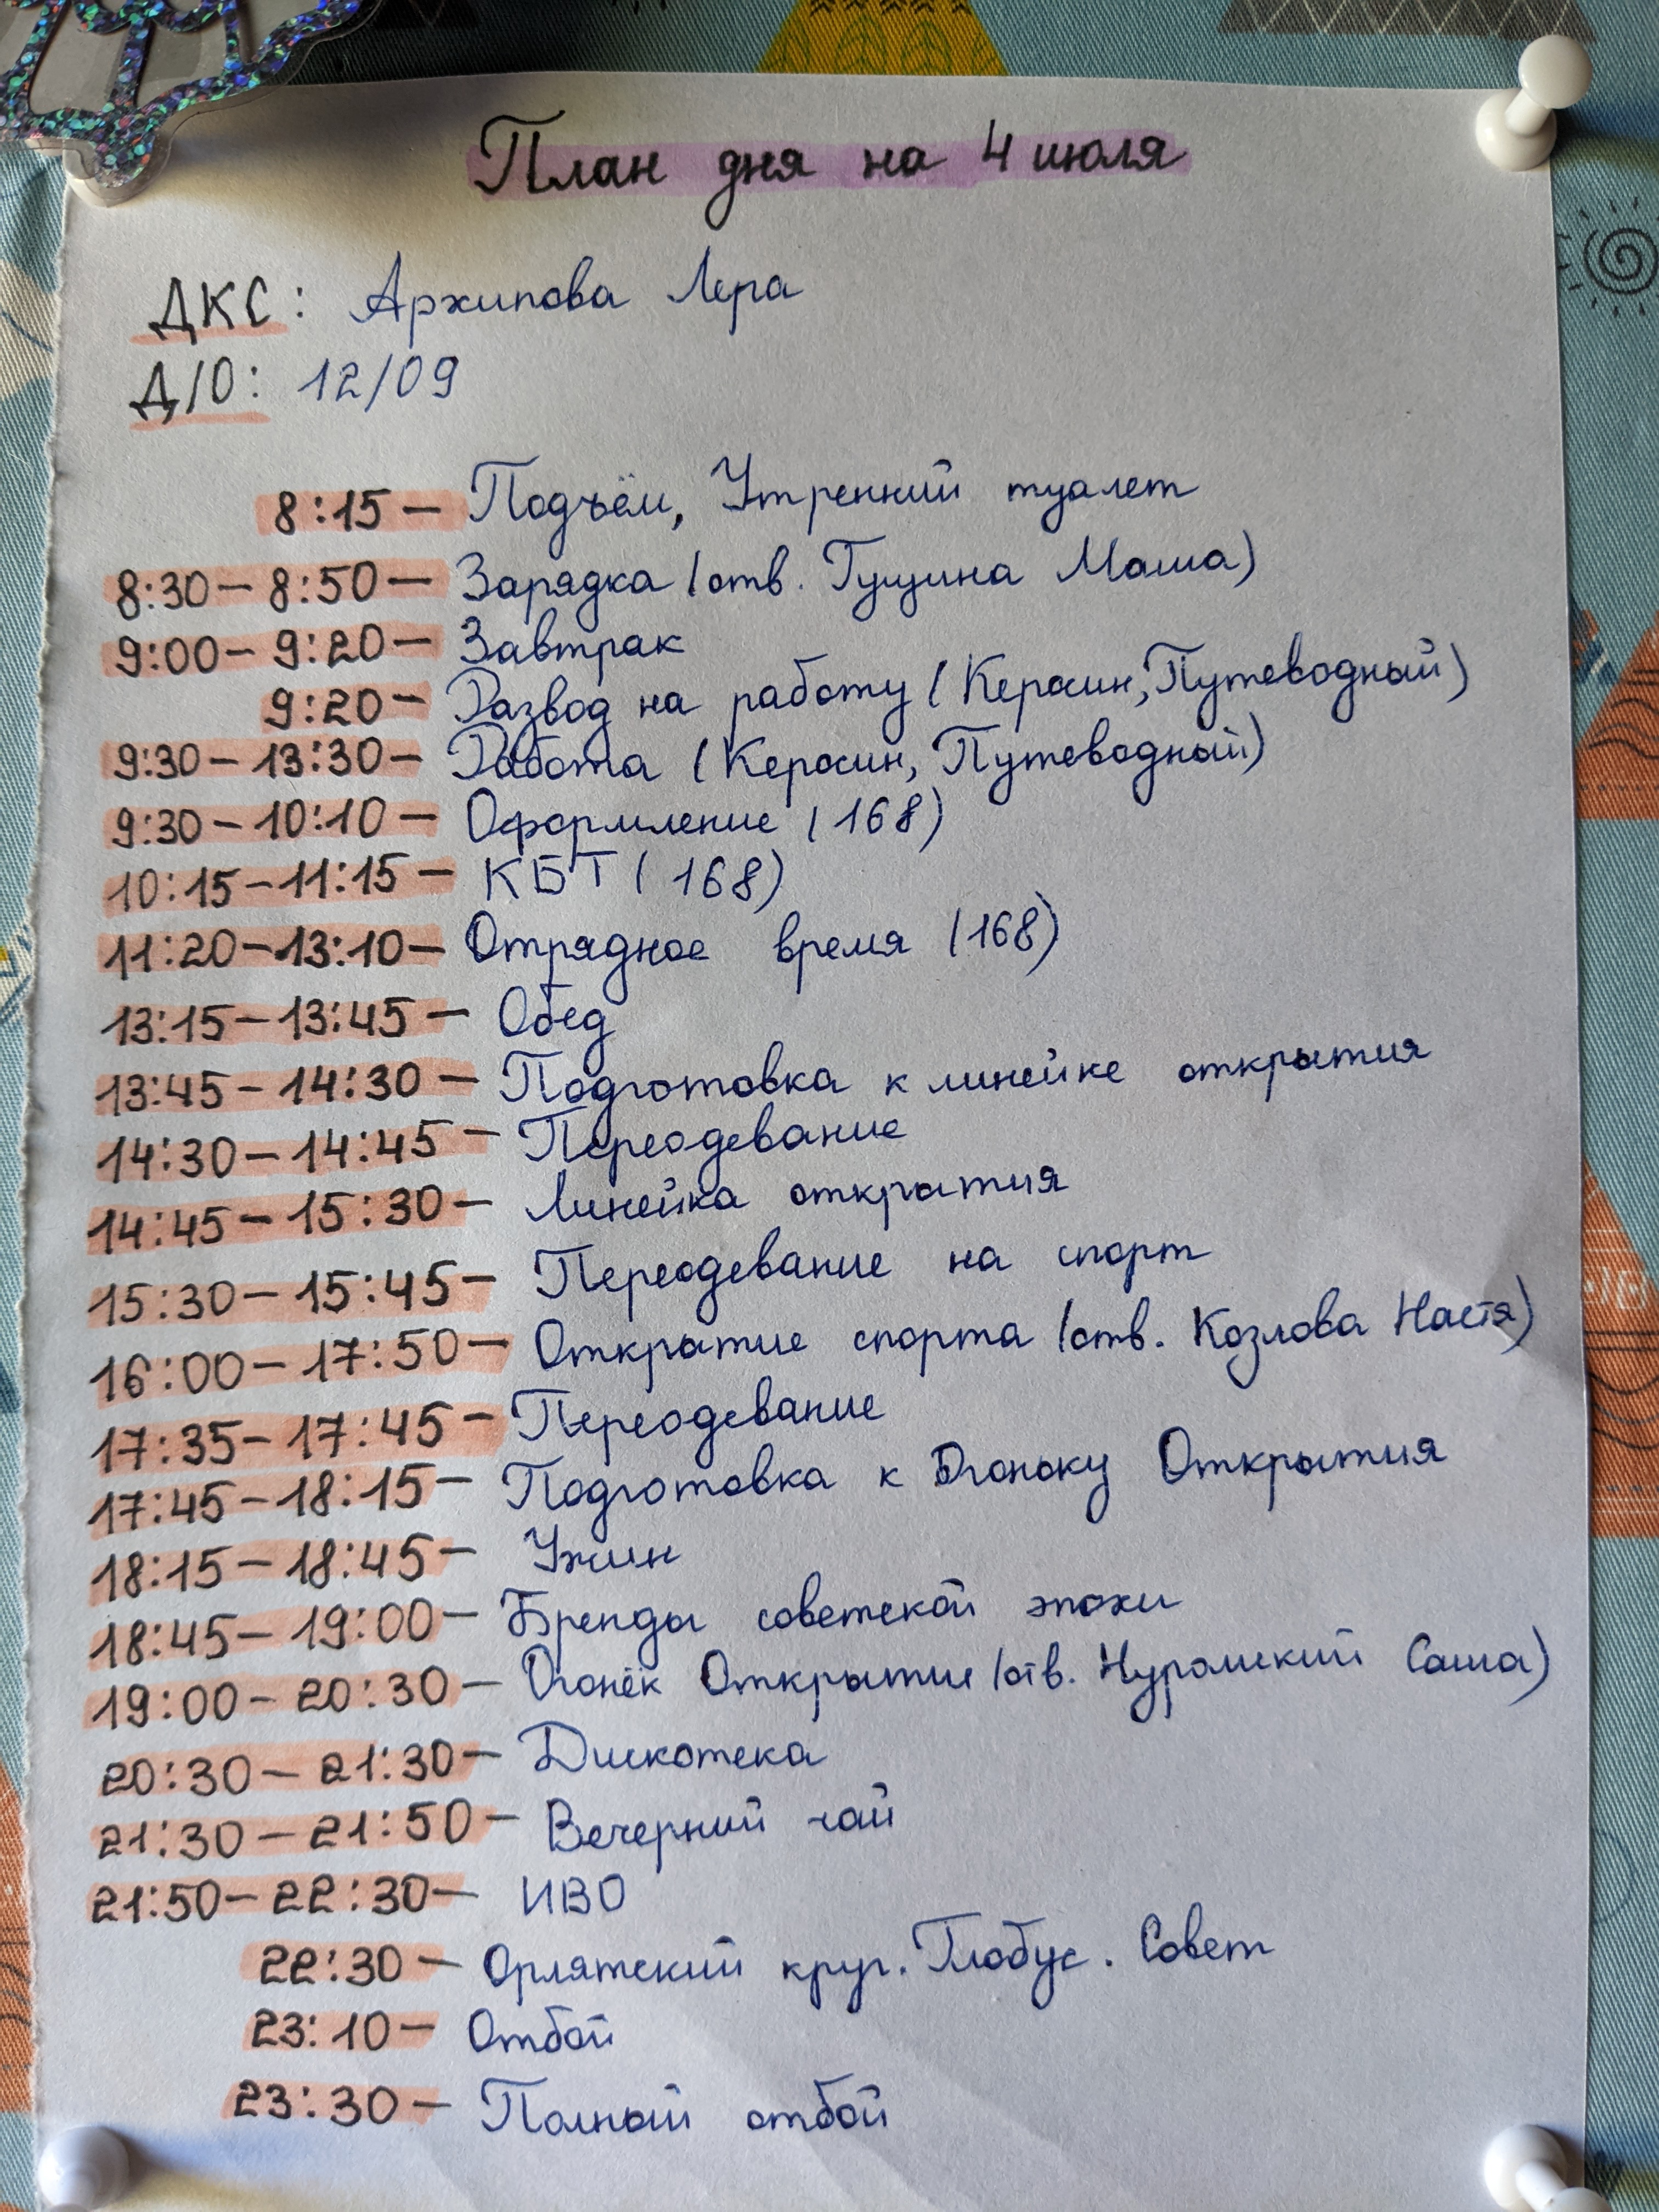 План дня на 4 июля
ДКС: Архипова Лера
Д/О: 12/09
8:15 — Подъём, Утренний туалет
8:30 — 8:50 — Зарядка (отв. Гущина Маша)
9:00 — 9:20 — Завтрак
9:20 — Развод на работу (Керосин, Путеводный)
9:30 — 13:30 — Работа (Керосин, Путеводный)
9:30 — 10:10 — Оформление (168)
10:15 — 11:15 — КБТ (168)
11:20 — 13:10 — Отрядное время (168)
13:15 — 13:45 — Обед
13:45 — 14:30 — Подготовка к линейке открытия
14:30 — 14:45 — Переодевание
14:45 — 15:30 — Линейка открытия
15:30 — 15:45 — Переодевание на спорт
16:00 — 17:50 — Открытие спорта (отв. Козлова Настя)
17:35 — 17:45 — Переодевание
17:45 — 18:15 — Подготовка к Огоньку Открытия
18:15 — 18:45 — Ужин
18:45 — 19:00 — Бренды советской эпохи
19:00 — 20:30 — Огонёк Открытие (отв. Саша)
20:30 — 21:30 — Дискотека
21:30 — 21:50 — Вечерний чай
21:50 — 22:30 — ИВО
22:30 — Орлятский круг. Глобус. Совет
23:10 — Отбой
23:30 — Полный отбой